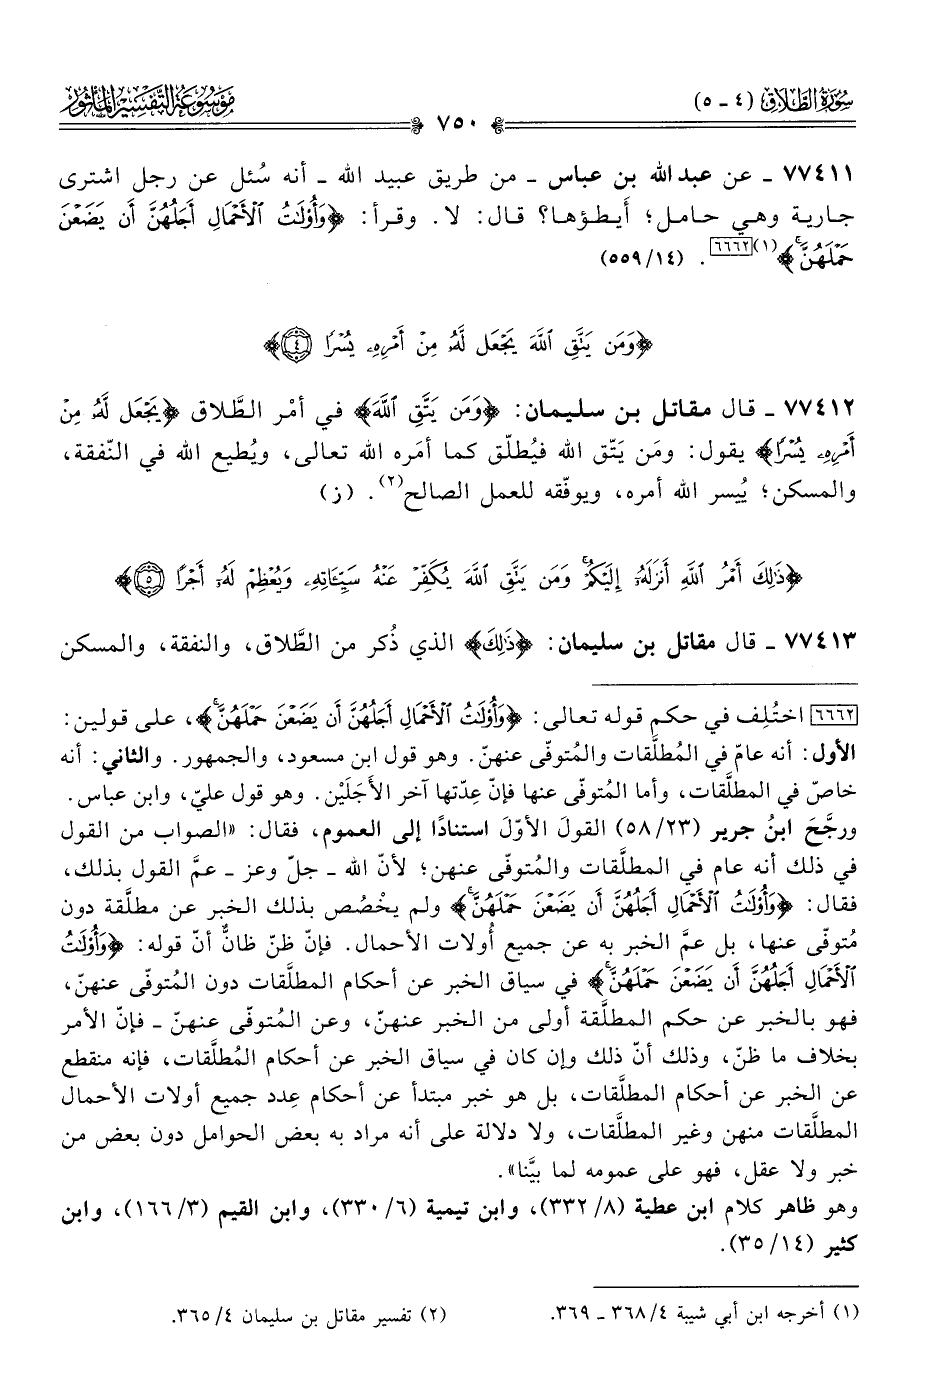 سُورَةُ الطَّلَاقِ (٤ - ٥)
مَوْسُوعَةُ التَّفْسِيرِ الْمَأْثُورِ
٧٥٠
٧٧٤١١ - عن عبد الله بن عباس - من طريق عبيد الله - أنه سُئل عن رجل اشترى
جارية وهي حامل؛ أَيطؤها؟ قال: لا. وقرأ: ﴿وَأُوْلَٰتُ ٱلْأَحْمَالِ أَجَلُهُنَّ أَن يَضَعْنَ
حَمْلَهُنَّۚ﴾(١)[٦٦٦٢]. (١٤/ ٥٥٩)
﴿وَمَن يَتَّقِ ٱللَّهَ يَجْعَل لَّهُۥ مِنْ أَمْرِهِۦ يُسْرًا ٤﴾
٧٧٤١٢ - قال مقاتل بن سليمان: ﴿وَمَن يَتَّقِ ٱللَّهَ﴾ في أمْر الطَّلاق ﴿يَجْعَل لَّهُۥ مِنْ
أَمْرِهِۦ يُسْرًا﴾ يقول: ومَن يَتّق الله فيُطلّق كما أمَره الله تعالى، ويُطيع الله في النّفقة،
والمسكن؛ يُيسر الله أمره، ويوفّقه للعمل الصالح(٢). (ز)
﴿ذَٰلِكَ أَمْرُ ٱللَّهِ أَنزَلَهُۥٓ إِلَيْكُمْۚ وَمَن يَتَّقِ ٱللَّهَ يُكَفِّرْ عَنْهُ سَيِّـَٔاتِهِۦ وَيُعْظِمْ لَهُۥٓ أَجْرًا ٥﴾
٧٧٤١٣ - قال مقاتل بن سليمان: ﴿ذَٰلِكَ﴾ الذي ذُكر من الطَّلاق، والنفقة، والمسكن
[٦٦٦٢] اختُلِف في حكم قوله تعالى: ﴿وَأُوْلَٰتُ ٱلْأَحْمَالِ أَجَلُهُنَّ أَن يَضَعْنَ حَمْلَهُنَّۚ﴾، على قولين:
الأول: أنه عامّ في المُطلَّقات والمُتوفّى عنهنّ. وهو قول ابن مسعود، والجمهور. والثاني: أنه
خاصّ في المطلَّقات، وأما المُتوفّى عنها فإنّ عِدّتها آخر الأَجَلَيْن. وهو قول عليّ، وابن عباس.
ورجَّحَ ابنُ جرير (٢٣/ ٥٨) القولَ الأوّلَ استنادًا إلى العموم، فقال: «الصواب من القول
في ذلك أنه عام في المطلَّقات والمُتوفّى عنهن؛ لأنّ الله - جلّ وعز - عمَّ القول بذلك،
فقال: ﴿وَأُوْلَٰتُ ٱلْأَحْمَالِ أَجَلُهُنَّ أَن يَضَعْنَ حَمْلَهُنَّۚ﴾ ولم يخْصُص بذلك الخبر عن مطلَّقة دون
مُتوفّى عنها، بل عمَّ الخبر به عن جميع أُولات الأحمال. فإنّ ظنّ ظانٌّ أنّ قوله: ﴿وَأُوْلَٰتُ
ٱلْأَحْمَالِ أَجَلُهُنَّ أَن يَضَعْنَ حَمْلَهُنَّۚ﴾ في سياق الخبر عن أحكام المطلَّقات دون المُتوفى عنهنّ،
فهو بالخبر عن حكم المطلَّقة أولى من الخبر عنهنّ، وعن المُتوفّى عنهنّ - فإنّ الأمر
بخلاف ما ظنّ، وذلك أنّ ذلك وإن كان في سياق الخبر عن أحكام المُطلَّقات، فإنه منقطع
عن الخبر عن أحكام المطلَّقات، بل هو خبر مبتدأ عن أحكام عِدد جميع أولات الأحمال
المطلَّقات منهن وغير المطلَّقات، ولا دلالة على أنه مراد به بعض الحوامل دون بعض من
خبر ولا عقل، فهو على عمومه لما بيَّنا».
وهو ظاهر كلام ابن عطية (٨/ ٣٣٢)، وابن تيمية (٦/ ٣٣٠)، وابن القيم (٣/ ١٦٦)، وابن
كثير (١٤/ ٣٥).
(١) أخرجه ابن أبي شيبة ٤/ ٣٦٨ - ٣٦٩.
(٢) تفسير مقاتل بن سليمان ٤/ ٣٦٥.